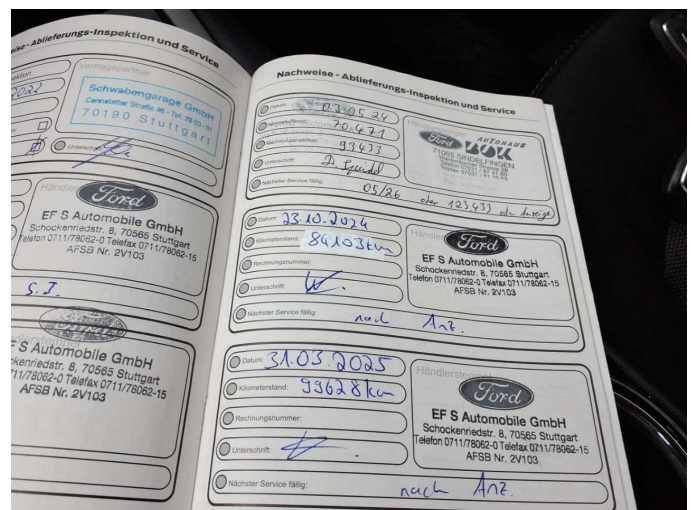 eise - Ablieferungs-Inspektion und Service
ektion
2022
Vertragspartner
Schwabengarage GmbH
Cannstatter Straße 46 - Tel. 28 03-01
70190 Stuttgart
Unterschrift:
Händlerstempel
Ford
EF S Automobile GmbH
Schockenriedstr. 8, 70565 Stuttgart
Telefon 0711/78062-0 Telefax 0711/78062-15
AFSB Nr. 2V103
S.J.
F S Automobile GmbH
ckenriedstr. 8, 70565 Stuttgart
711/78062-0 Telefax 0711/78062-15
AFSB Nr. 2V103
Nachweise - Ablieferungs-Inspektion und Service
Datum: 03.05.24
Kilometerstand:
Rechnungsnummer: 93433
Unterschrift:
Nächster Service fällig: 05/26 oder 123433 od. Anzeige
Händlerstempel
Ford AUTOHAUS
71065 SINDELFINGEN
Datum: 23.10.2024
Kilometerstand: 84103km
Rechnungsnummer:
Unterschrift:
Nächster Service fällig: nach Anz.
Händlerstempel
Ford
EF S Automobile GmbH
Schockenriedstr. 8, 70565 Stuttgart
Telefon 0711/78062-0 Telefax 0711/78062-15
AFSB Nr. 2V103
Datum: 31.03.2025
Kilometerstand: 99628km
Rechnungsnummer:
Unterschrift:
Nächster Service fällig: nach Anz.
Händlerstempel
Ford
EF S Automobile GmbH
Schockenriedstr. 8, 70565 Stuttgart
Telefon 0711/78062-0 Telefax 0711/78062-15
AFSB Nr. 2V103